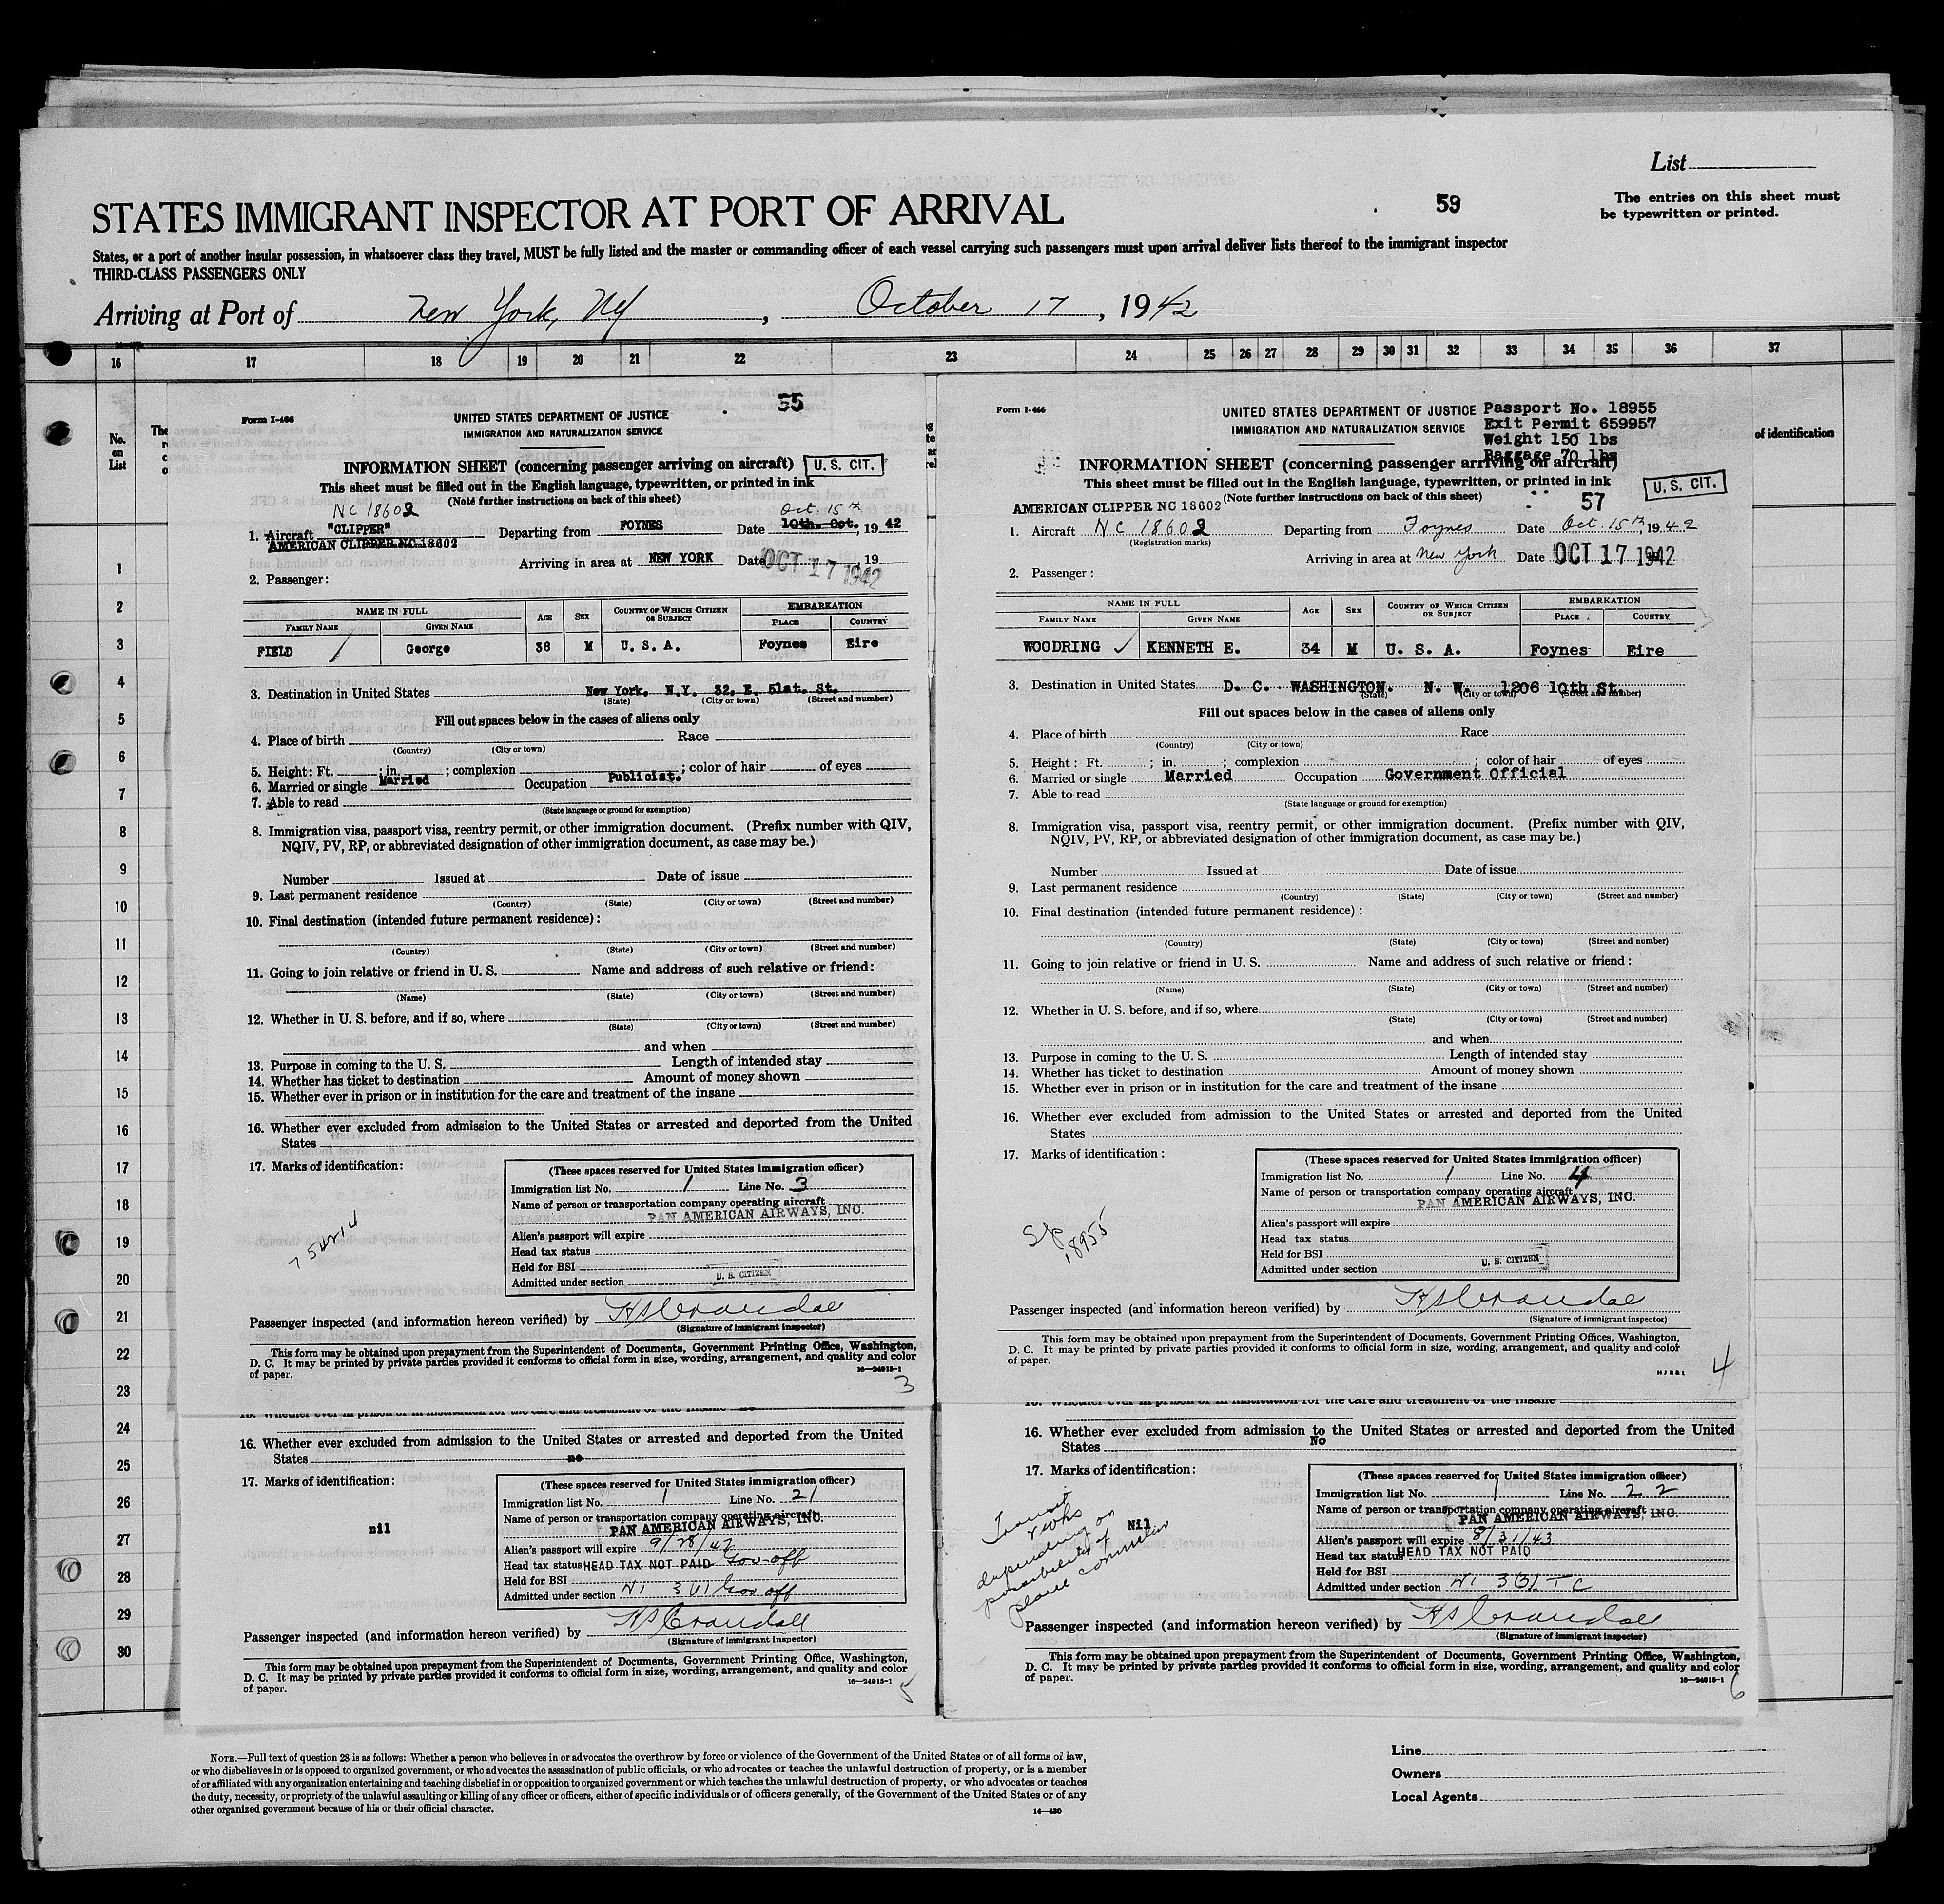 List
59
The entries on this sheet must
be typewritten or printed.
STATES IMMIGRANT INSPECTOR AT PORT OF ARRIVAL
States, or a port of another insular possession, in whatsoever class they travel, MUST be fully listed and the master or commanding officer of each vessel carrying such passengers must upon arrival deliver lists thereof to the immigrant inspector
THIRD-CLASS PASSENGERS ONLY
Arriving at Port of New York, NY, October 17, 1942
16 17 18 19 20 21 22 23 24 25 26 27 28 29 30 31 32 33 34 35 36 37
No.
on
List
of identification
1
2
3
4
5
6
7
8
9
10
11
12
13
14
15
16
17
18
19
20
21
22
23
24
25
26
27
28
29
30
55
Form I-466
UNITED STATES DEPARTMENT OF JUSTICE
IMMIGRATION AND NATURALIZATION SERVICE
INFORMATION SHEET (concerning passenger arriving on aircraft) U. S. CIT.
This sheet must be filled out in the English language, typewritten, or printed in ink
(Note further instructions on back of this sheet)
NC 18602 Oct. 15th
1. Aircraft "CLIPPER" Departing from FOYNES Date 10th. Oct., 1942
AMERICAN CLIPPER NC 18602
Arriving in area at NEW YORK Date OCT 17 1942, 19
2. Passenger:
NAME IN FULL AGE SEX COUNTRY OF WHICH CITIZEN OR SUBJECT EMBARKATION
FAMILY NAME GIVEN NAME PLACE COUNTRY
FIELD George 38 M U. S. A. Foynes Eire
3. Destination in United States New York, N.Y. 32, E. 51st. St.
(State) (City or town) (Street and number)
Fill out spaces below in the cases of aliens only
4. Place of birth Race
(Country) (City or town)
5. Height: Ft. ; in. ; complexion ; color of hair of eyes
6. Married or single Married Occupation Publicist.
7. Able to read
(State language or ground for exemption)
8. Immigration visa, passport visa, reentry permit, or other immigration document. (Prefix number with QIV,
NQIV, PV, RP, or abbreviated designation of other immigration document, as case may be.)
Number Issued at Date of issue
9. Last permanent residence
(Country) (State) (City or town) (Street and number)
10. Final destination (intended future permanent residence):
(Country) (State) (City or town) (Street and number)
11. Going to join relative or friend in U. S. Name and address of such relative or friend:
(Name) (State) (City or town) (Street and number)
12. Whether in U. S. before, and if so, where
(State) (City or town) (Street and number)
and when
13. Purpose in coming to the U. S. Length of intended stay
14. Whether has ticket to destination Amount of money shown
15. Whether ever in prison or in institution for the care and treatment of the insane
16. Whether ever excluded from admission to the United States or arrested and deported from the United
States
17. Marks of identification:
(These spaces reserved for United States immigration officer)
Immigration list No. 1 Line No. 3
Name of person or transportation company operating aircraft
PAN AMERICAN AIRWAYS, INC.
Alien's passport will expire
Head tax status
Held for BSI
Admitted under section U. S. CITIZEN
Passenger inspected (and information hereon verified) by HS Crandall
(Signature of immigrant inspector)
This form may be obtained upon prepayment from the Superintendent of Documents, Government Printing Office, Washington,
D. C. It may be printed by private parties provided it conforms to official form in size, wording, arrangement, and quality and color
of paper.
16—24913-1
3
Form I-466
UNITED STATES DEPARTMENT OF JUSTICE
IMMIGRATION AND NATURALIZATION SERVICE
Passport No. 18955
Exit Permit 659957
Weight 150 lbs
Baggage 70 lbs
INFORMATION SHEET (concerning passenger arriving on aircraft)
This sheet must be filled out in the English language, typewritten, or printed in ink
U. S. CIT.
(Note further instructions on back of this sheet)
57
AMERICAN CLIPPER NC 18602
1. Aircraft NC 18602 Departing from Foynes Date Oct. 15th, 1942
(Registration marks)
Arriving in area at New York Date OCT 17 1942
2. Passenger:
NAME IN FULL AGE SEX COUNTRY OF WHICH CITIZEN OR SUBJECT EMBARKATION
FAMILY NAME GIVEN NAME PLACE COUNTRY
WOODRING KENNETH E. 34 M U. S. A. Foynes Eire
3. Destination in United States D. C. WASHINGTON. N. W. 1206 10th St.
(State) (City or town) (Street and number)
Fill out spaces below in the cases of aliens only
4. Place of birth Race
(Country) (City or town)
5. Height: Ft. ; in. ; complexion ; color of hair of eyes
6. Married or single Married Occupation Government Official
7. Able to read
(State language or ground for exemption)
8. Immigration visa, passport visa, reentry permit, or other immigration document. (Prefix number with QIV,
NQIV, PV, RP, or abbreviated designation of other immigration document, as case may be.)
Number Issued at Date of issue
9. Last permanent residence
(Country) (State) (City or town) (Street and number)
10. Final destination (intended future permanent residence):
(Country) (State) (City or town) (Street and number)
11. Going to join relative or friend in U. S. Name and address of such relative or friend:
(Name) (State) (City or town) (Street and number)
12. Whether in U. S. before, and if so, where
(State) (City or town) (Street and number)
and when
13. Purpose in coming to the U. S. Length of intended stay
14. Whether has ticket to destination Amount of money shown
15. Whether ever in prison or in institution for the care and treatment of the insane
16. Whether ever excluded from admission to the United States or arrested and deported from the United
States
17. Marks of identification:
18955
(These spaces reserved for United States immigration officer)
Immigration list No. 1 Line No. 4
Name of person or transportation company operating aircraft
PAN AMERICAN AIRWAYS, INC.
Alien's passport will expire
Head tax status
Held for BSI
Admitted under section U. S. CITIZEN
Passenger inspected (and information hereon verified) by HS Crandall
(Signature of immigrant inspector)
This form may be obtained upon prepayment from the Superintendent of Documents, Government Printing Offices, Washington,
D. C. It may be printed by private parties provided it conforms to official form in size, wording, arrangement, and quality and color
of paper.
4
15. Whether ever in prison or in institution for the care and treatment of the insane
16. Whether ever excluded from admission to the United States or arrested and deported from the United
States no
17. Marks of identification:
nil
(These spaces reserved for United States immigration officer)
Immigration list No. 1 Line No. 21
Name of person or transportation company operating aircraft
PAN AMERICAN AIRWAYS, INC.
Alien's passport will expire 9/28/47
Head tax status HEAD TAX NOT PAID Gov off
Held for BSI
Admitted under section 3 (1) Gov off
Passenger inspected (and information hereon verified) by HS Crandall
(Signature of immigrant inspector)
This form may be obtained upon prepayment from the Superintendent of Documents, Government Printing Office, Washington,
D. C. It may be printed by private parties provided it conforms to official form in size, wording, arrangement, and quality and color
of paper.
16—24913-1
5
15. Whether ever in prison or in institution for the care and treatment of the insane
16. Whether ever excluded from admission to the United States or arrested and deported from the United
States No
17. Marks of identification:
Nil
Transit
depending on
possibility of
plane
(These spaces reserved for United States immigration officer)
Immigration list No. 1 Line No. 22
Name of person or transportation company operating aircraft
PAN AMERICAN AIRWAYS, INC.
Alien's passport will expire 8/31/43
Head tax status HEAD TAX NOT PAID
Held for BSI
Admitted under section 3(3) T C
Passenger inspected (and information hereon verified) by HS Crandall
(Signature of immigrant inspector)
This form may be obtained upon prepayment from the Superintendent of Documents, Government Printing Office, Washington,
D. C. It may be printed by private parties provided it conforms to official form in size, wording, arrangement, and quality and color
of paper.
16—24913-1
6
NOTE.—Full text of question 28 is as follows: Whether a person who believes in or advocates the overthrow by force or violence of the Government of the United States or of all forms of law,
or who disbelieves in or is opposed to organized government, or who advocates the assassination of public officials, or who advocates or teaches the unlawful destruction of property, or is a member
of or affiliated with any organization entertaining and teaching disbelief in or opposition to organized government or which teaches the unlawful destruction of property, or who advocates or teaches
the duty, necessity, or propriety of the unlawful assaulting or killing of any officer or officers, either of specific individuals or of officers generally, of the Government of the United States or of any
other organized government because of his or their official character.
14—430
Line
Owners
Local Agents